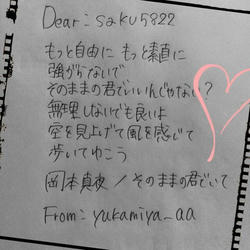 Dear：saku5822
もっと自由に もっと素直に
強がらないで
そのままの君でいいんじゃない？
無理しないでも良いよ
空を見上げて風を感じて
歩いてゆこう
岡本真夜／そのままの君でいて
From：yukamiya_aa